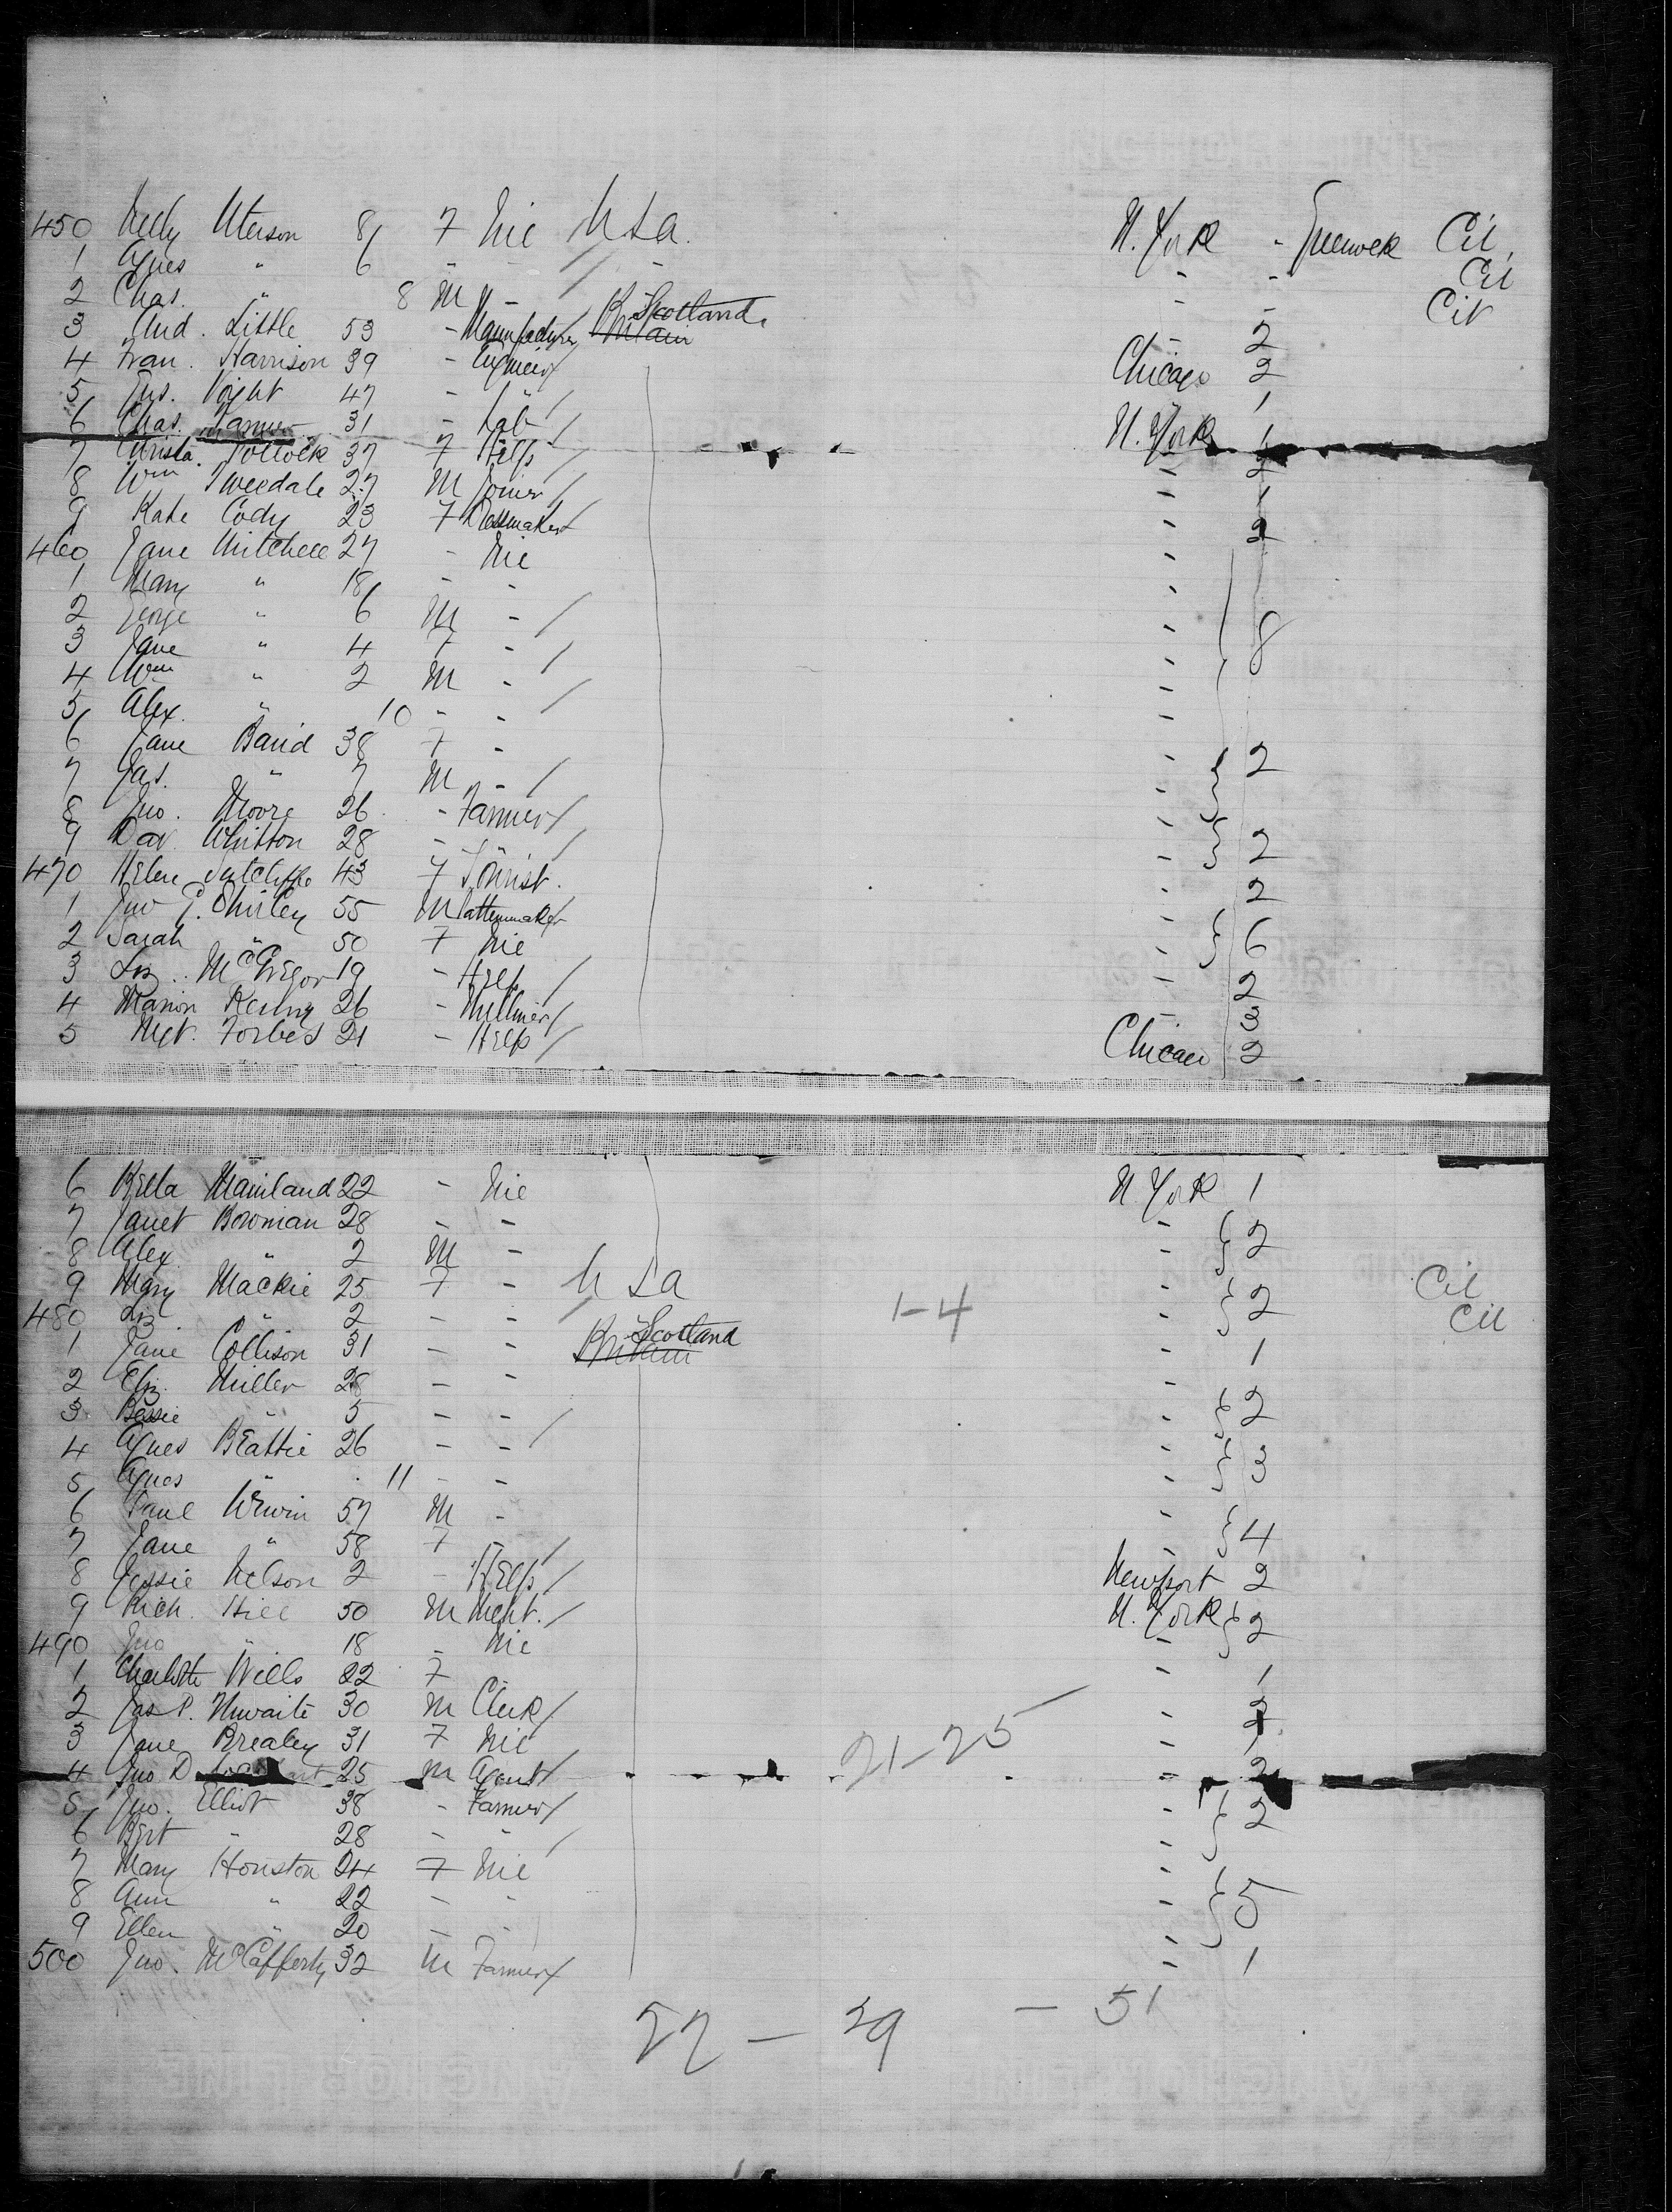 450 Nelly Uterson 8 7 Nie U S a. N. York - Greenock Cit
1 Agnes " 6 - - - - - Cit
2 Chas. " 8 M - - - Cit
3 And. Little 53 - Manufacturer Britain Scotland - 2
4 Fran. Harrison 39 - Engineer Chicago 2
5 Jas. Voight 47 - - 1
6 Chas. Farmer 31 - Lab N. York 1
7 Christa. Pollock 37 7 Help - 2
8 Wm Tweedale 27 M Joiner - 1
9 Kate Cody 23 7 Dressmaker - 2
460 Jane Mitchell 27 - Nie -
1 Mary " 18 - - -
2 George " 6 M - - 8
3 Jane " 4 7 - -
4 Wm " 2 M - -
5 Alex. " 10 - - -
6 Jane Baird 38 7 - - 2
7 Jas. " 7 M - -
8 Jno. Moore 26 - Farmer -
9 Dav. Whitton 28 - - - 2
470 Helen Sutcliffe 43 7 Tourist. - 2
1 Jno G. Shirley 55 M Patternmaker - 6
2 Sarah " 50 7 Nie -
3 Liz. McGregor 19 - Help - 2
4 Marion 26 - Milliner - 3
5 Mgt. Forbes 21 - Help Chicago 2
6 Bella Mainland 22 - Nie N. York 1
7 Janet Bowman 28 - - - 2
8 Alex. " 2 M - -
9 Mary Mackie 25 7 - U S a - 2 Cit
480 Liz. " 2 - - 1-4 - Cit
1 Jane Collison 31 - - Britain Scotland - 1
2 Eliz. Miller 28 - - - 2
3 Bessie " 5 - - -
4 Agnes Beattie 26 - - - 3
5 Agnes " 11 - - -
6 Irwin 57 M - - 4
7 Jane " 58 7 - -
8 Jessie Nelson 2 - Help Newport 2
9 Rich. Hill 50 M Mcht. N. York 2
490 Jno " 18 - Nie -
1 Charlotte Wells 22 7 - - 1
2 Jas P. 30 M Clerk - 2
3 Jane Brealey 31 7 Nie - 1
4 Jno D 25 M Agent 21-25 - 2
5 Jno. Elliot 38 - Farmer - 2
6 " 28 - - -
7 Mary Houston 24 7 Nie -
8 Ann " 22 - - - 5
9 Ellen " 20 - - -
500 Jno. McCafferty 32 M Farmer - 1
22 - 29 - 51